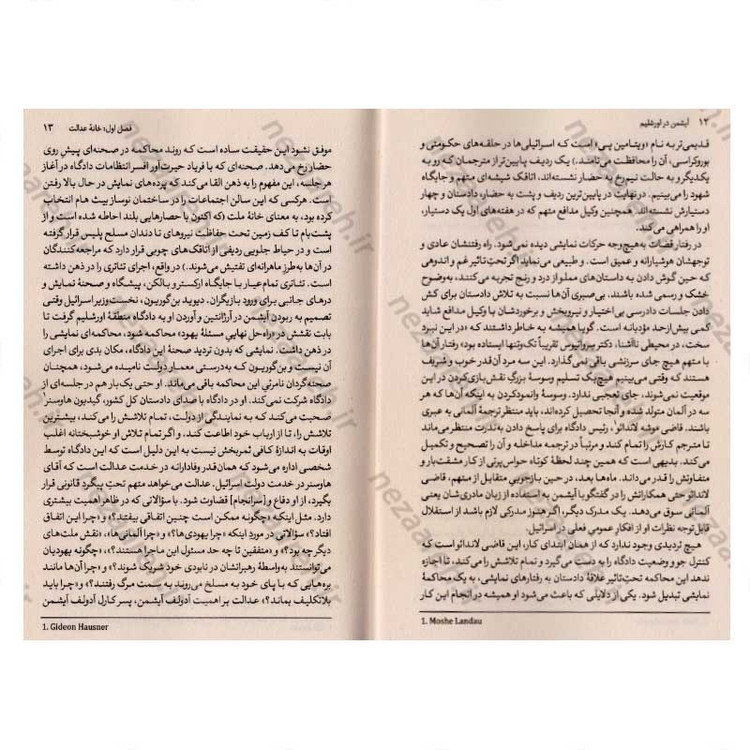 ۱۲ آیشمن در اورشلیم
قدیمی‌تر به نام «ویتامین پی» است که اسرائیلی‌ها در حلقه‌های حکومتی و
بوروکراسی، آن را محافظت می‌نامند.)، یک ردیف پایین‌تر از مترجمان که رو به
یکدیگر و به حالت نیم‌رخ به حضار نشسته‌اند، اتاقک شیشه‌ای متهم و جایگاه
شهود را می‌بینیم. در نهایت در پایین‌ترین ردیف و پشت به حضار، دادستان و چهار
دستیارش نشسته‌اند. همچنین وکیل مدافع متهم که در هفته‌های اول یک دستیار،
او را همراهی می‌کند.
در رفتار قضات به‌هیچ‌وجه حرکات نمایشی دیده نمی‌شود. راه رفتنشان عادی و
توجهشان هوشیارانه و عمیق است. و طبیعی می‌نماید اگر تحت‌تاثیر غم و اندوهی
که حین گوش دادن به داستان‌های مملو از درد و رنج تجربه می‌کنند، به‌وضوح
خشک و رسمی شده باشند. بی‌صبری آن‌ها نسبت به تلاش دادستان برای کش
دادن جلسات دادرسی بی‌اختیار و نیروبخش و برخوردشان با وکیل مدافع شاید
کمی بیش از حد مؤدبانه است. گویا همیشه به خاطر داشتند که «در این نبرد
سخت، در محیطی ناآشنا، دکتر سرواتیوس تقریباً تک‌وتنها ایستاده بود؛ رفتار آن‌ها
با متهم هیچ جای سرزنشی باقی نمی‌گذارد. این سه مرد آن‌قدر خوب و شریف
هستند که وقتی می‌بینیم هیچ‌یک تسلیم وسوسهٔ بزرگِ نقش بازی کردن در این
موقعیت نمی‌شوند، جای تعجبی ندارد. وسوسهٔ وانمود کردن به اینکه آن‌ها که هر
سه در آلمان متولد شده و آنجا تحصیل کرده‌اند، باید منتظر ترجمهٔ آلمانی به عبری
باشند. قاضی موشه لاندائو¹، رئیس دادگاه برای پاسخ دادن به‌ندرت منتظر می‌ماند
تا مترجم کارش را تمام کند و مرتباً در ترجمه مداخله و آن را تصحیح و تکمیل
می‌کند. بدیهی است که همین چند لحظهٔ کوتاه حواس‌پرتی از کار مشقت‌بار و
متفاوتش را قدر می‌داند. ماه‌ها بعد، در حین بازجویی متقابل از متهم، قاضی
لاندائو حتی همکارانش را در گفتگو با آیشمن به استفاده از زبان مادری‌شان یعنی
آلمانی سوق می‌دهد. یک مدرک دیگر، اگر هنوز مدرکی لازم باشد از استقلال
قابل توجه نظرات او از افکار عمومی فعلی در اسرائیل.
هیچ تردیدی وجود ندارد که از همان ابتدای کار، این قاضی لاندائو است که
کنترل جو و وضعیت دادگاه را به دست می‌گیرد و تمام تلاشش را می‌کند، تا اجازه
ندهد این محاکمه تحت‌تاثیر علاقهٔ دادستان به رفتارهای نمایشی، به یک محاکمهٔ
نمایشی تبدیل شود. یکی از دلایلی که باعث می‌شود او همیشه در انجام این کار
1. Moshe Landau
فصل اول: خانهٔ عدالت ۱۳
موفق نشود این حقیقت ساده است که روند محاکمه در صحنه‌ای پیش روی
حضار رخ می‌دهد. صحنه‌ای که با فریاد حیرت‌آور افسر انتظامات دادگاه در آغاز
هر جلسه، این مفهوم را به ذهن القا می‌کند که پرده‌های نمایش در حال بالا رفتن
است. هرکسی که این سالن اجتماعات را در ساختمان نوساز بیث هام انتخاب
کرده بود، به معنای خانهٔ ملت (که اکنون با حصارهایی بلند احاطه شده است و از
پشت‌بام تا کف زمین تحت حفاظت نیروهای تا دندان مسلح پلیس قرار گرفته
است و در حیاط جلویی ردیفی از اتاقک‌های چوبی قرار دارد که مراجعه‌کنندگان
در آن‌ها به طرز ماهرانه‌ای تفتیش می‌شوند.) در واقع، اجرای تئاتری را در ذهن داشته
است. تئاتری تمام‌عیار با جایگاه ارکستر و بالکن، پیشگاه و صحنهٔ نمایش و
درهای جانبی برای ورود بازیگران. دیوید بن‌گوریون، نخست‌وزیر اسرائیل وقتی
تصمیم به ربودن آیشمن در آرژانتین و آوردن او به دادگاه منطقهٔ اورشلیم گرفت تا
بابت نقشش در «راه‌حل نهایی مسئلهٔ یهود» محاکمه شود، محاکمه‌ای نمایشی را
در ذهن داشت. نمایشی که بدون تردید صحنهٔ این دادگاه، مکان بدی برای اجرای
آن نیست و بن‌گوریون که به‌درستی معمار دولت نامیده می‌شود، همچنان
صحنه‌گردان نامرئی این محاکمه باقی می‌ماند. او حتی یک بار هم در جلسه‌ای از
دادگاه شرکت نمی‌کند. او در دادگاه با صدای دادستان کل کشور، گیدیون هاوسنر¹
صحبت می‌کند که به نمایندگی از دولت، تمام تلاشش را می‌کند، بیشترین
تلاشش را، تا از ارباب خود اطاعت کند. و اگر تمام تلاش او خوشبختانه اغلب
اوقات به اندازهٔ کافی ثمربخش نیست به این دلیل است که این دادگاه توسط
شخصی اداره می‌شود که همان‌قدر وفادارانه در خدمت عدالت است که آقای
هاوسنر در خدمت دولت اسرائیل. عدالت می‌خواهد متهم تحتِ پیگرد قانونی قرار
بگیرد، از او دفاع و [سرانجام] قضاوت شود. با سؤالاتی که در ظاهر اهمیت بیشتری
دارد. مثل اینکه «چگونه ممکن است چنین اتفاقی بیفتد؟» و «چرا این اتفاق
افتاد؟» سؤالاتی در مورد اینکه «چرا یهودی‌ها؟» و «چرا آلمانی‌ها؟»، «نقش ملت‌های
دیگر چه بود؟» و «متفقین تا چه حد مسئول این ماجرا هستند؟»، «چگونه یهودیان
می‌توانستند به‌واسطهٔ رهبرانشان در نابودی خود شریک شوند؟» و «چرا آن‌ها مانند
بره‌هایی که با پای خود به مسلخ می‌روند به سمت مرگ رفتند؟» و «چرا باید
بلاتکلیف بماند؟» عدالت بر اهمیت آدولف آیشمن، پسر کارل آدولف آیشمن
1. Gideon Hausner
nezaareh.ir